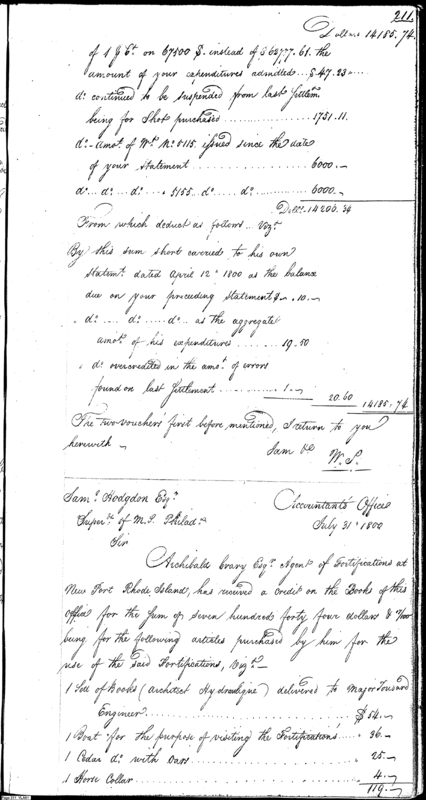 211.
Dollars 14185.74.
of 1 p Ct. on 67500 $. instead of $ 62777.61. the
amount of your expenditures admitted...$ 47.23
do. continued to be suspended from last Settlemt.
being for Shot purchased ........ 1751.11.
do. amot. of Wt. No. 5115. issued since the date
of your statement ........ 6000.
do... do.. do... 5155. do..... do. ........ 6000.
Dolls. 14206.34
From which deduct as follows... Vizt.
By this sum short carried to his own
Statemt. dated April 12th 1800 as the balance
due on your preceeding Statement $ .10.
do..... do..... do... as the aggregate
amot. of his expenditures ........ 19.50
do. overcredited in the amot. of errors
found on last Settlement ........ 1. 20.60 14185.74.
The two vouchers first before mentioned, I return to you
herewith
I am &c
W. S.
Saml. Hodgdon Esqr. Accountants Office
Super. of M. S. Philada. July 31st 1800
Sir
Archibald Crary Esqr. Agent of Fortifications at
New Port Rhode Island, has received a credit on the Books of this
Office for the sum of seven hundred forty four dollars &
being for the following articles purchased by him for the
use of the said Fortifications, Vizt.
1 Sett of Books (Architect Hydraulique) delivered to Major Tousard
Engineer ........ $ 54.
1 Boat for the purpose of visiting the Fortifications .... 36.
1 Cedar do. with Oars ........ 25.
1 Horse Collar ........ 4.
119.